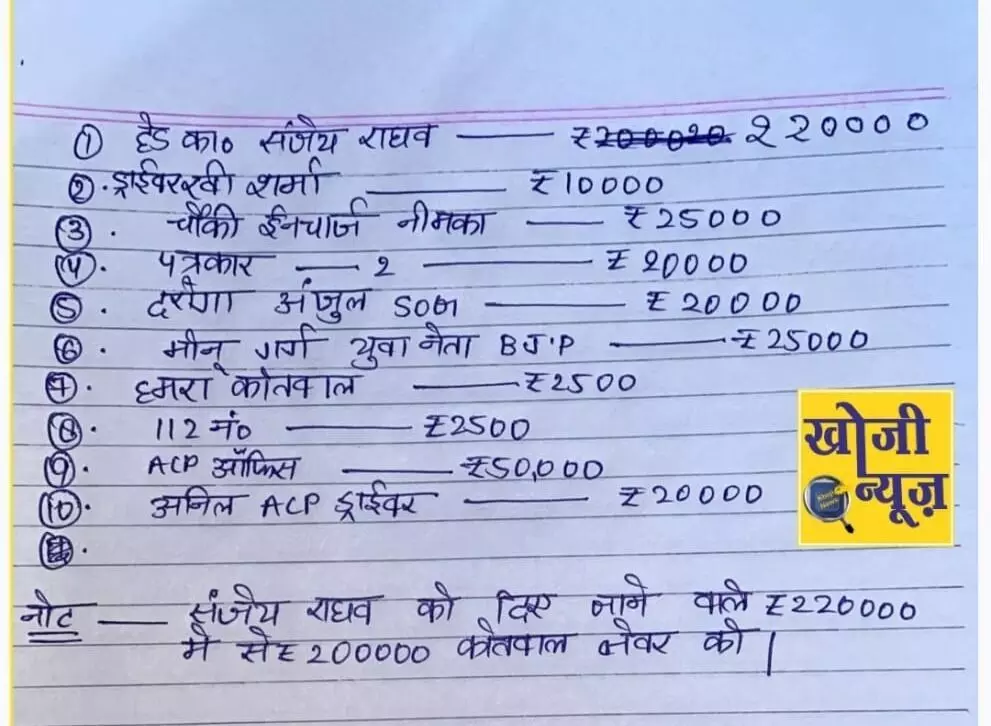 ① हेड का० संजैय राघव —— ₹200020 220000
② . ड्राईवर रवी शर्मा —— ₹10000
③ . चौकी ईनचार्ज नीमका —— ₹25000
④ . पत्रकार — 2 —— ₹20000
⑤ . दरोगा अंजुल SOG —— ₹20000
⑥ . मीनू गर्ग युवा नेता BJ'P —— ₹25000
⑦ . हमरा कोतवाल —— ₹2500
⑧ . 112 नं० —— ₹2500
⑨ . ACP ऑफिस —— ₹50,000
⑩ . अनिल ACP ड्राईवर —— ₹20000
नोट —— संजैय राघव को दिए जाने वाले ₹220000
मे से ₹200000 कोतवाल जेवर को |
खोजी
न्यूज़